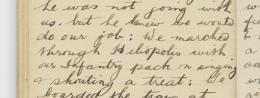 he was not going with
us, but he knew we would
do our job: We marched
through Heliopolis with
our Infantry pack on singing
& shouting a treat: We
boarded the train at